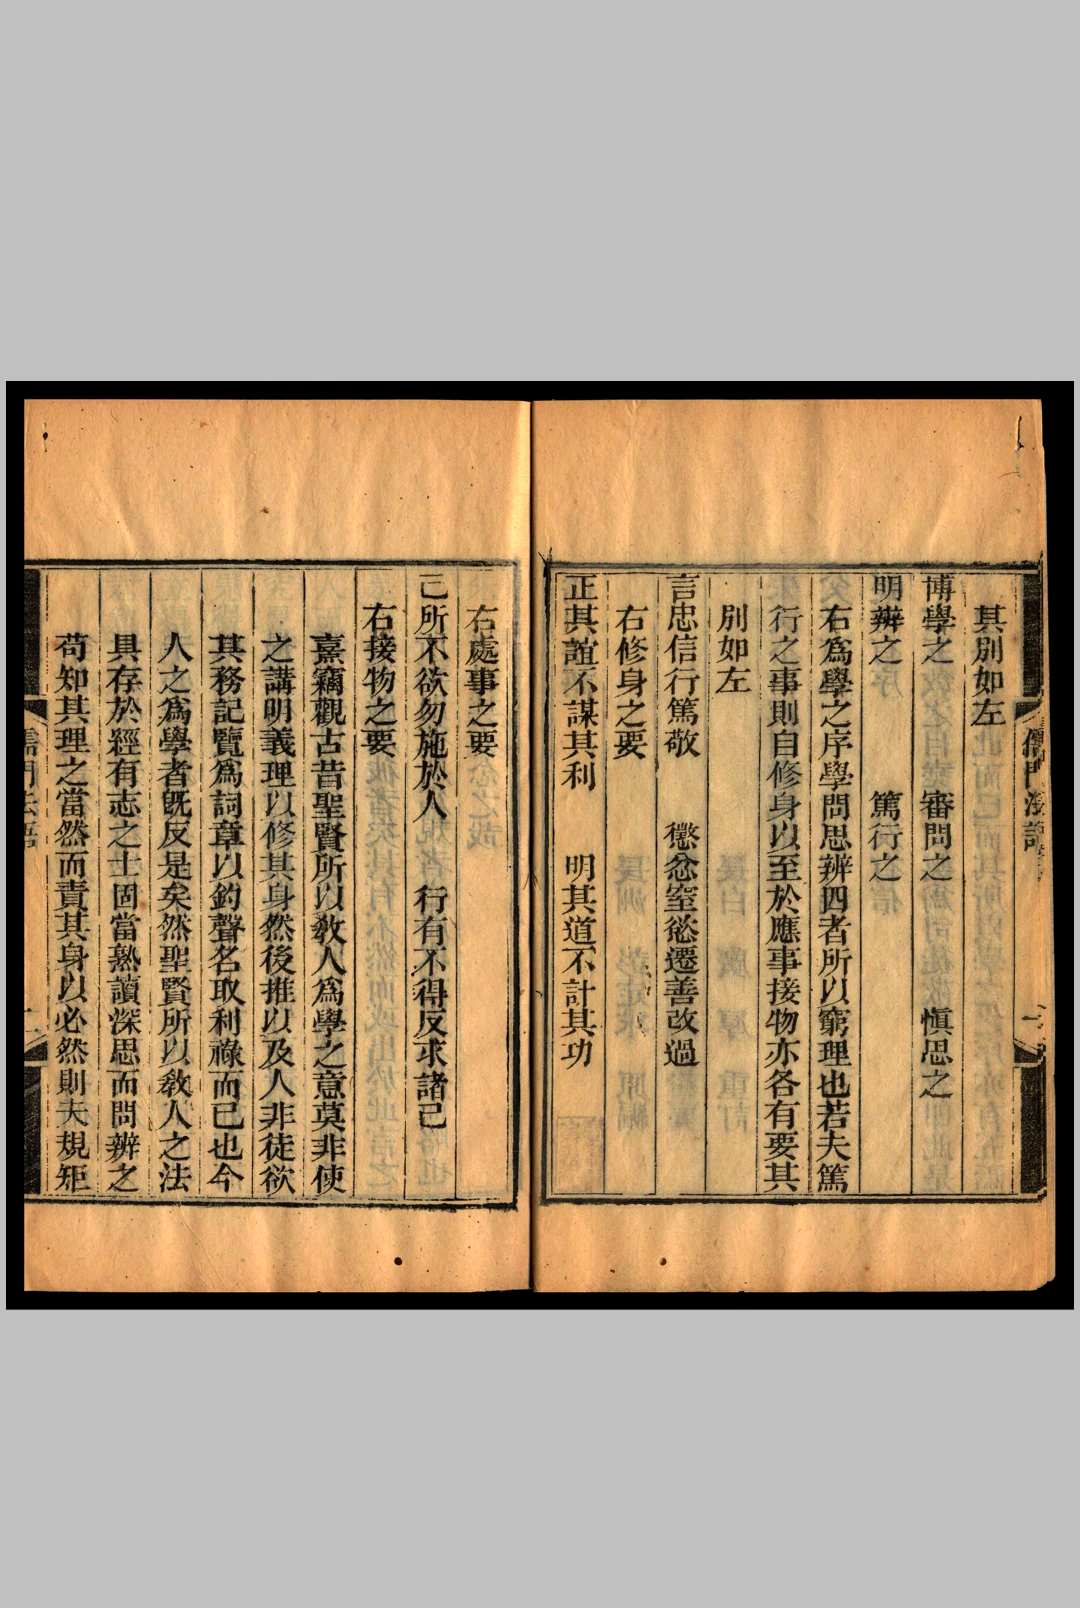 儒門法語
一
其別如左
博學之　審問之　愼思之
明辨之　篤行之
右爲學之序學問思辨四者所以窮理也若夫篤
行之事則自修身以至於應事接物亦各有要其
別如左
言忠信行篤敬　懲忿窒慾遷善改過
右修身之要
正其誼不謀其利　明其道不計其功
右處事之要
己所不欲勿施於人　行有不得反求諸己
右接物之要
熹竊觀古昔聖賢所以敎人爲學之意莫非使
之講明義理以修其身然後推以及人非徒欲
其務記覽爲詞章以釣聲名取利祿而已也今
人之爲學者旣反是矣然聖賢所以敎人之法
具存於經有志之士固當熟讀深思而問辨之
苟知其理之當然而責其身以必然則夫規矩
儒門法語